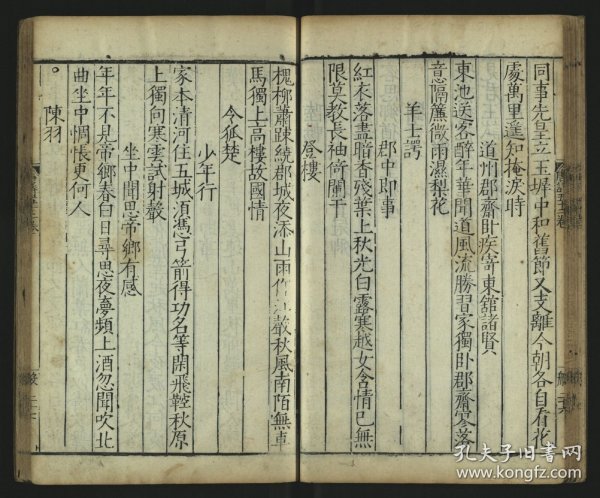 同事先皇立玉墀中和舊節又支離今朝各自看花
處萬里遥知掩淚時
道州郡齋卧疾寄東舘諸賢
東池送客醉年華聞道風流勝習家獨卧郡齋寥落
意隔簾微雨濕梨花
羊士諤
郡中即事
紅衣落盡暗香殘葉上秋光白露寒越女含情已無
限莫教長袖倚闌干
登樓
槐柳蕭踈繞郡城夜添山雨作江聲秋風南陌無車
馬獨上高樓故國情
令狐楚
少年行
家本清河住五城須憑弓箭得功名等閑飛鞚秋原
上獨向寒雲試射聲
坐中聞思帝鄉有感
年年不見帝鄉春白日尋思夜夢頻上酒忽聞吹此
曲坐中惆悵更何人
陳羽
孔夫子旧书网
www.kongfz.com